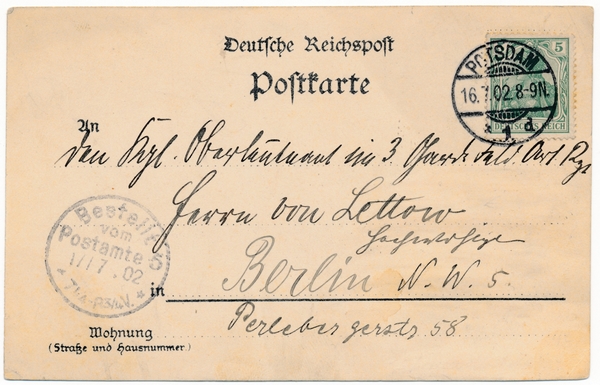 Deutsche Reichspost
Postkarte
5
DEUTSCHES REICH
POTSDAM
16.7.02.8-9N.
1 d
An
den Kgl. Oberleutnant im 3. Garde Feld. Art. Rgt
Herrn von Lettow
Bestellt
vom
Postamte 5
17/7.02
in Berlin N.W. 5.
Perlebergerstr 58
Wohnung
(Straße und Hausnummer)